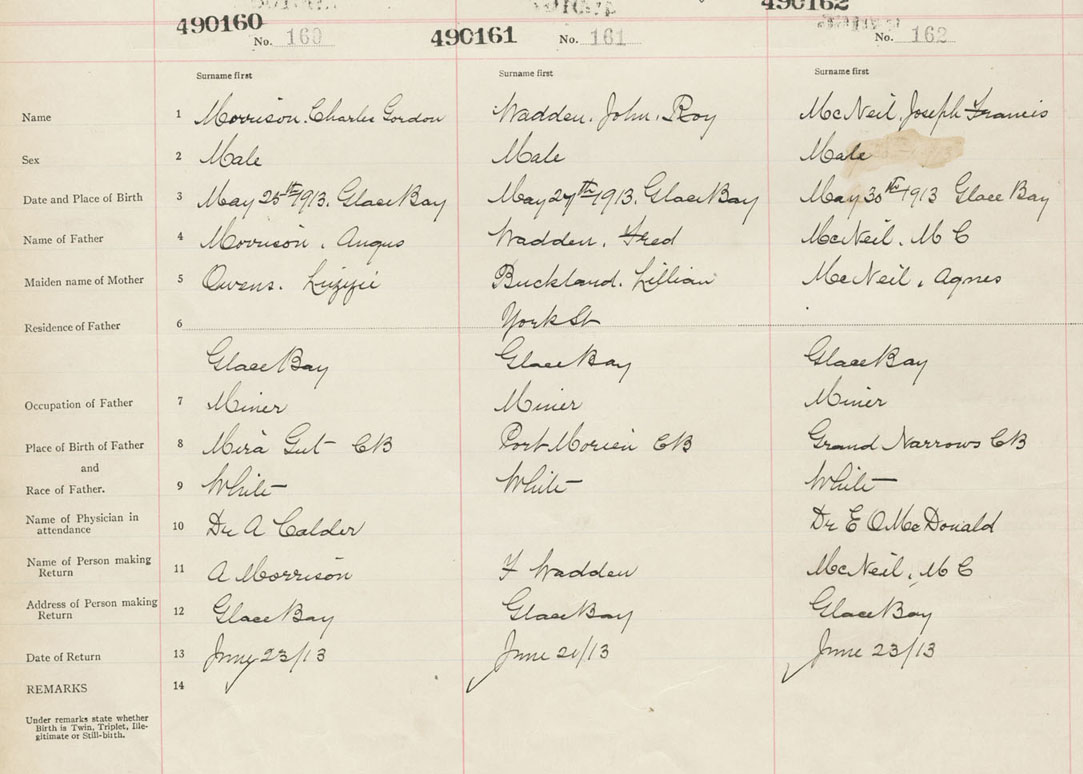 490160 490161 490162
No. 160 No. 161 No. 162
Surname first Surname first Surname first
Name 1 Morrison. Charles Gordon Wadden. John. Roy McNeil. Joseph Francis
Sex 2 Male Male Male
Date and Place of Birth 3 May 25th 1913. Glace Bay May 27th 1913. Glace Bay May 30th 1913 Glace Bay
Name of Father 4 Morrison. Angus Wadden. Fred McNeil. M C
Maiden name of Mother 5 Owens. Lizzie Buckland. Lillian McNeil. Agnes
Residence of Father 6 York St
Glace Bay Glace Bay Glace Bay
Occupation of Father 7 Miner Miner Miner
Place of Birth of Father 8 Mira Gut CB Port Morien CB Grand Narrows CB
and
Race of Father. 9 White White White
Name of Physician in
attendance 10 Dr A Calder Dr E O McDonald
Name of Person making
Return 11 A Morrison F Wadden McNeil. M C
Address of Person making
Return 12 Glace Bay Glace Bay Glace Bay
Date of Return 13 June 23/13 June 21/13 June 23/13
REMARKS 14
Under remarks state whether
Birth is Twin, Triplet, Ille-
gitimate or Still-birth.